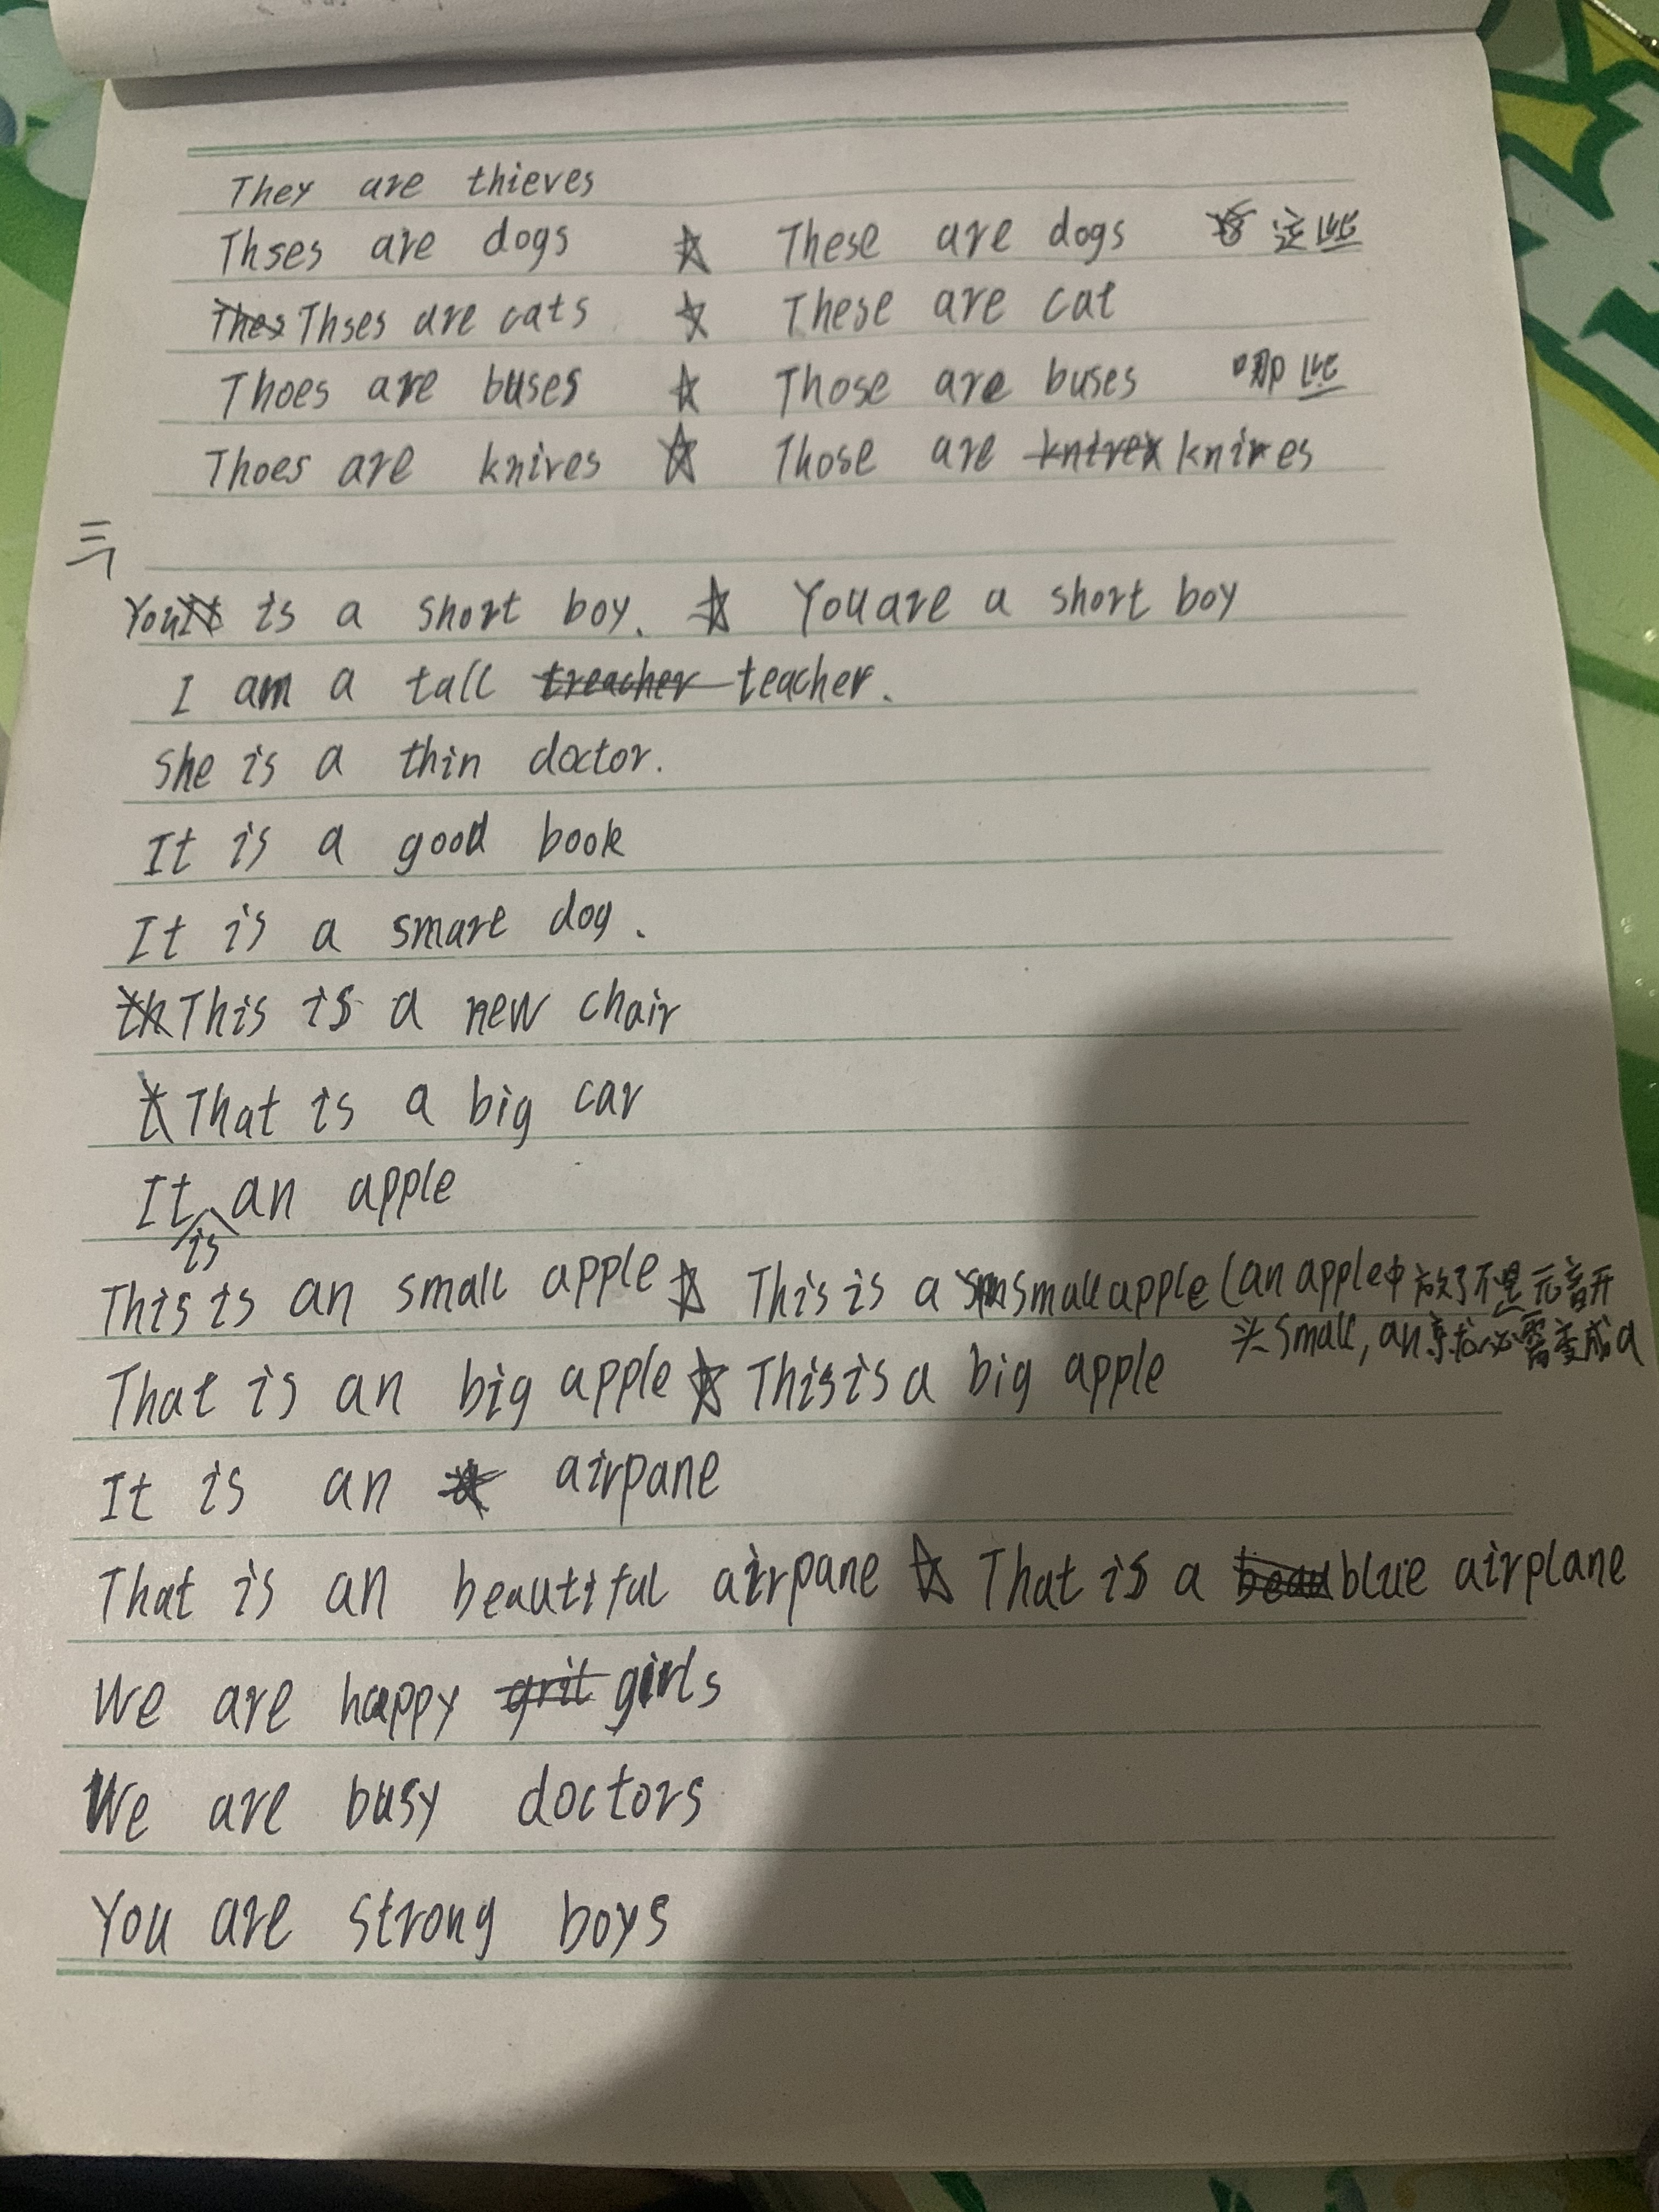 They are thieves
Thses are dogs ☆ These are dogs 这些
Thses are cats ☆ These are cat
Thoes are buses ☆ Those are buses 哪些
Thoes are knives ☆ Those are knives
三
You is a short boy. ☆ You are a short boy
I am a tall treacher teacher.
She is a thin doctor.
It is a good book
It is a smare dog.
This is a new chair
That is a big car
It is an apple
This is an small apple ☆ This is a small apple (an apple中放了不是元音开
头small, an 必需变成a
That is an big apple ☆ This is a big apple
It is an airpane
That is an beautiful airpane ☆ That is a beau blue airplane
We are happy grit girls
We are busy doctors
You are strong boys